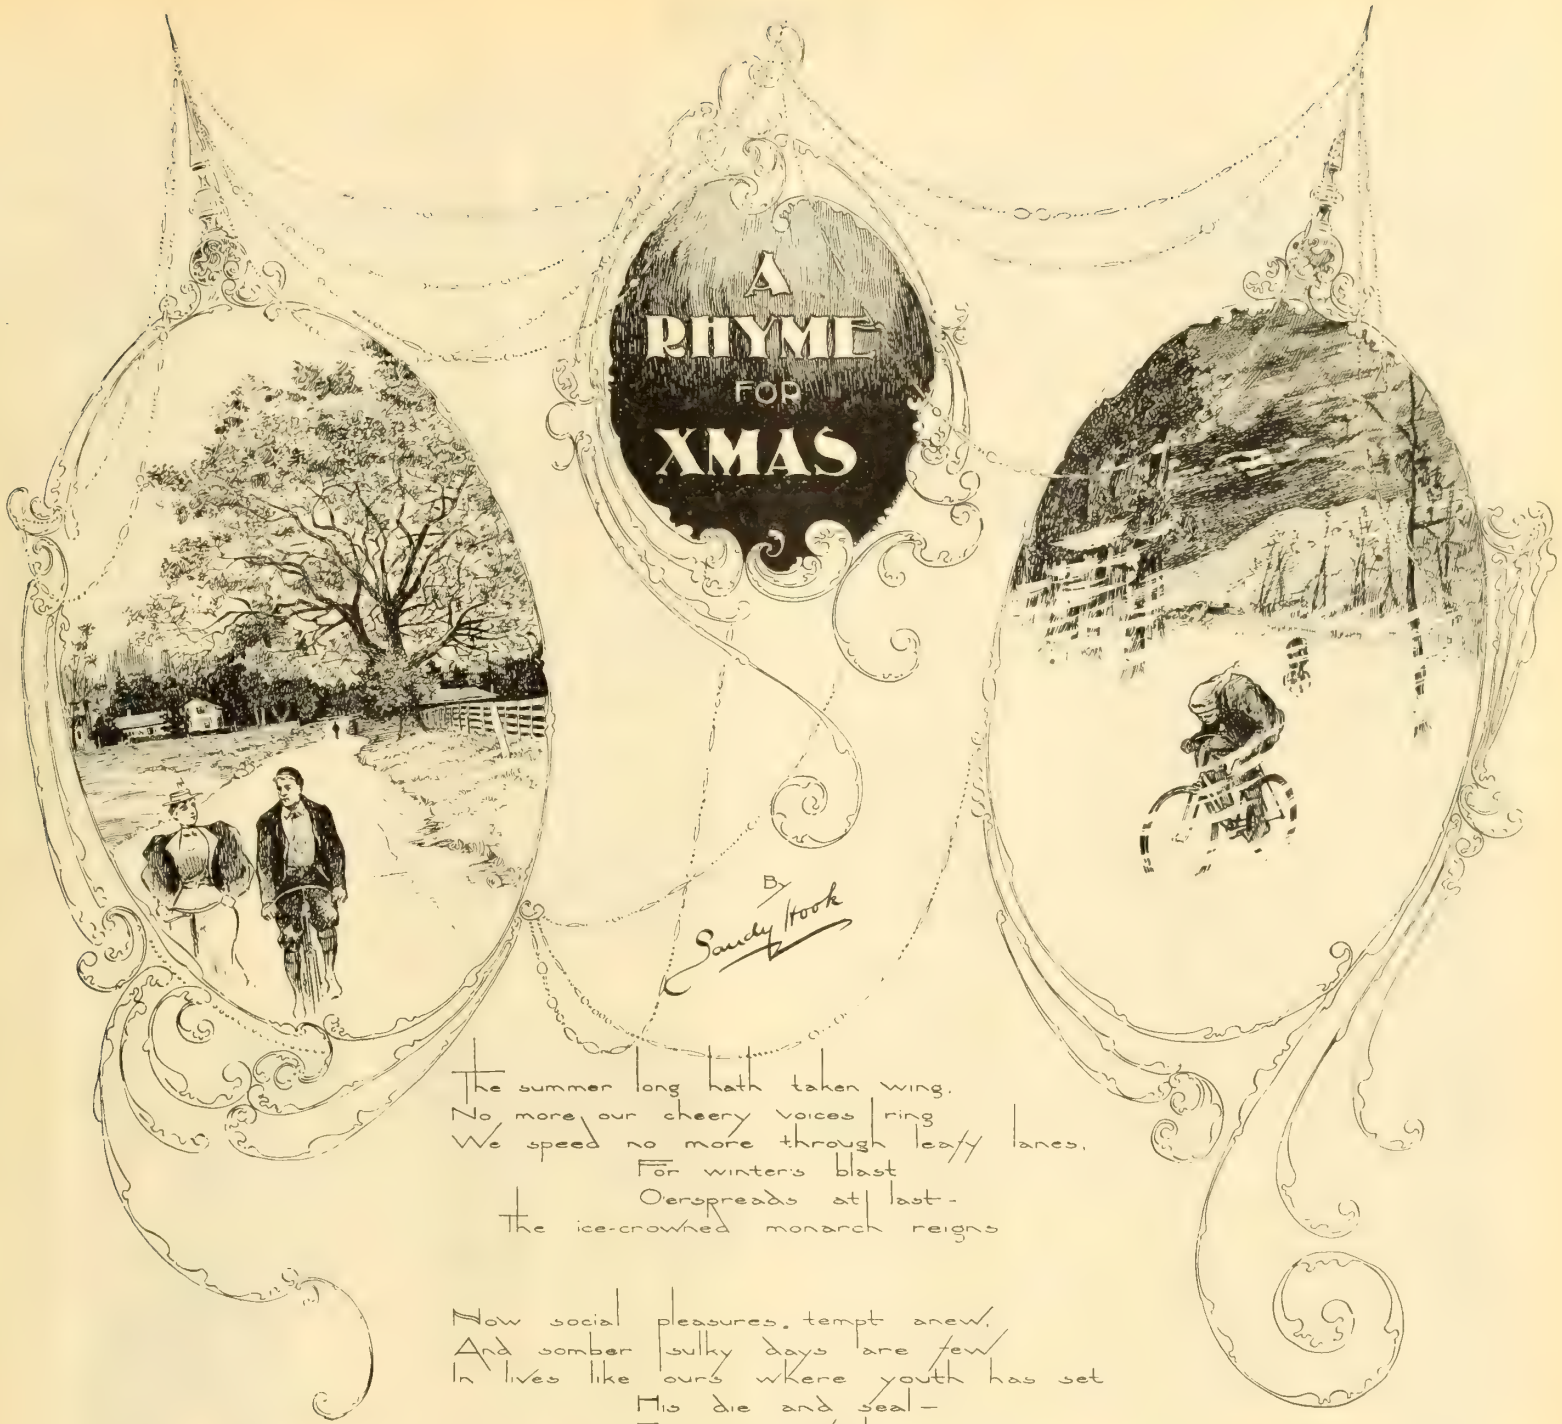 A
RHYME
FOR
XMAS
By
Sandy Hook
The summer long hath taken wing.
No more our cheery voices ring
We speed no more through leafy lanes.
For winter's blast
O'erspreads at last-
The ice-crowned monarch reigns
Now social pleasures. tempt anew.
And somber sulky days are few
In lives like ours where youth has set
His die and seal-